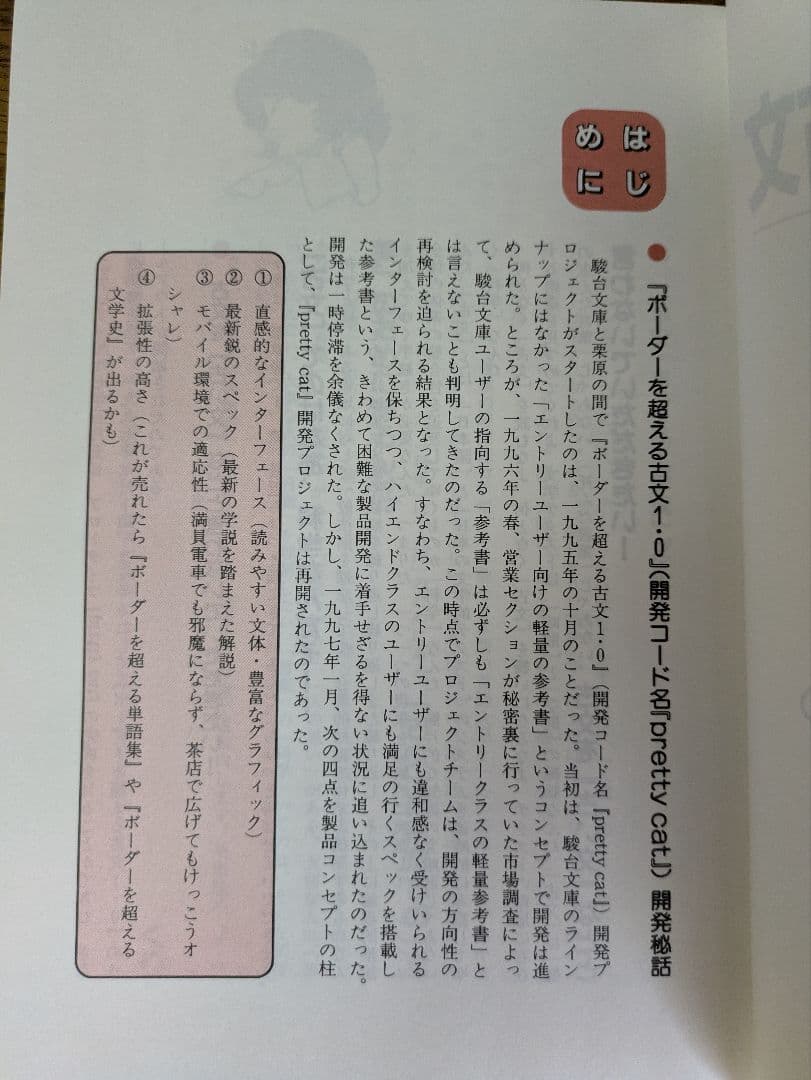 はじ
めに
●『ボーダーを超える古文1・0』(開発コード名『pretty cat』)開発秘話
駿台文庫と栗原の間で『ボーダーを超える古文1・0』(開発コード名『pretty cat』)開発プ
ロジェクトがスタートしたのは、一九九五年の十月のことだった。当初は、駿台文庫のライン
ナップにはなかった「エントリーユーザー向けの軽量の参考書」というコンセプトで開発は進
められた。ところが、一九九六年の春、営業セクションが秘密裏に行っていた市場調査によっ
て、駿台文庫ユーザーの指向する「参考書」は必ずしも「エントリークラスの軽量参考書」と
は言えないことも判明してきたのだった。この時点でプロジェクトチームは、開発の方向性の
再検討を迫られる結果となった。すなわち、エントリーユーザーにも違和感なく受けいられる
インターフェースを保ちつつ、ハイエンドクラスのユーザーにも満足の行くスペックを搭載し
た参考書という、きわめて困難な製品開発に着手せざるを得ない状況に追い込まれたのだった。
開発は一時停滞を余儀なくされた。しかし、一九九七年一月、次の四点を製品コンセプトの柱
として、『pretty cat』開発プロジェクトは再開されたのであった。
① 直感的なインターフェース(読みやすい文体・豊富なグラフィック)
② 最新鋭のスペック(最新の学説を踏まえた解説)
③ モバイル環境での適応性(満員電車でも邪魔にならず、茶店で広げてもけっこうオ
シャレ)
④ 拡張性の高さ(これが売れたら『ボーダーを超える単語集』や『ボーダーを超える
文学史』が出るかも)